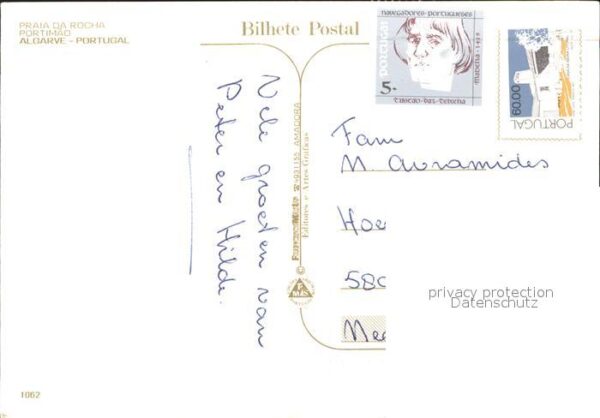 PRAIA DA ROCHA
PORTIMÃO
ALGARVE - PORTUGAL
Bilhete Postal
NAVEGADORES PORTUGUESES
portugal
MADEIRA 1419
5.-
60.00
PORTUGAL
Vele groeten van
Peter en Hilde.
AMADORA
Editores e Artes Gráficas
Fam
M. Avramides
Hoe
580
Mee
privacy protection
Datenschutz
1062